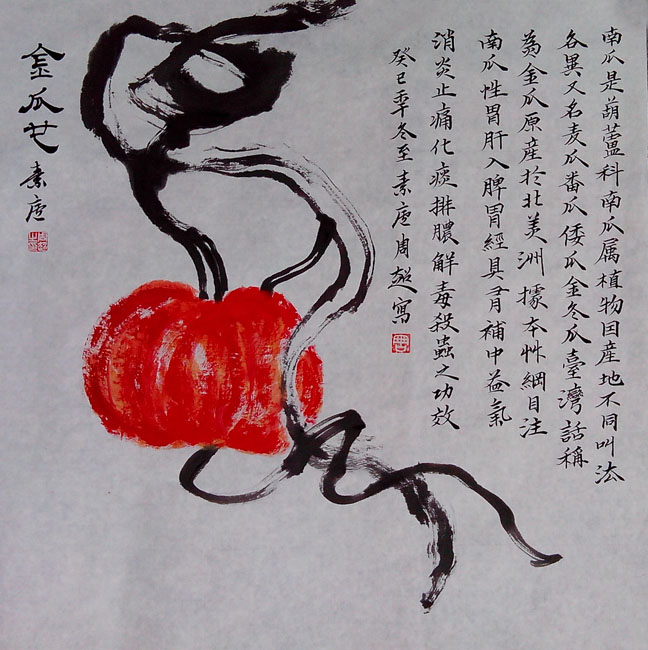 南瓜是葫蘆科南瓜属植物因産地不同叫法
各異又名麦瓜番瓜倭瓜金冬瓜臺灣話稱
為金瓜原産於北美洲據本艸綱目注
南瓜性胃肝入脾胃經具有補中益氣
消炎止痛化痰排膿解毒殺蟲之功效
癸巳年冬至素庵周超寫
金瓜
素庵